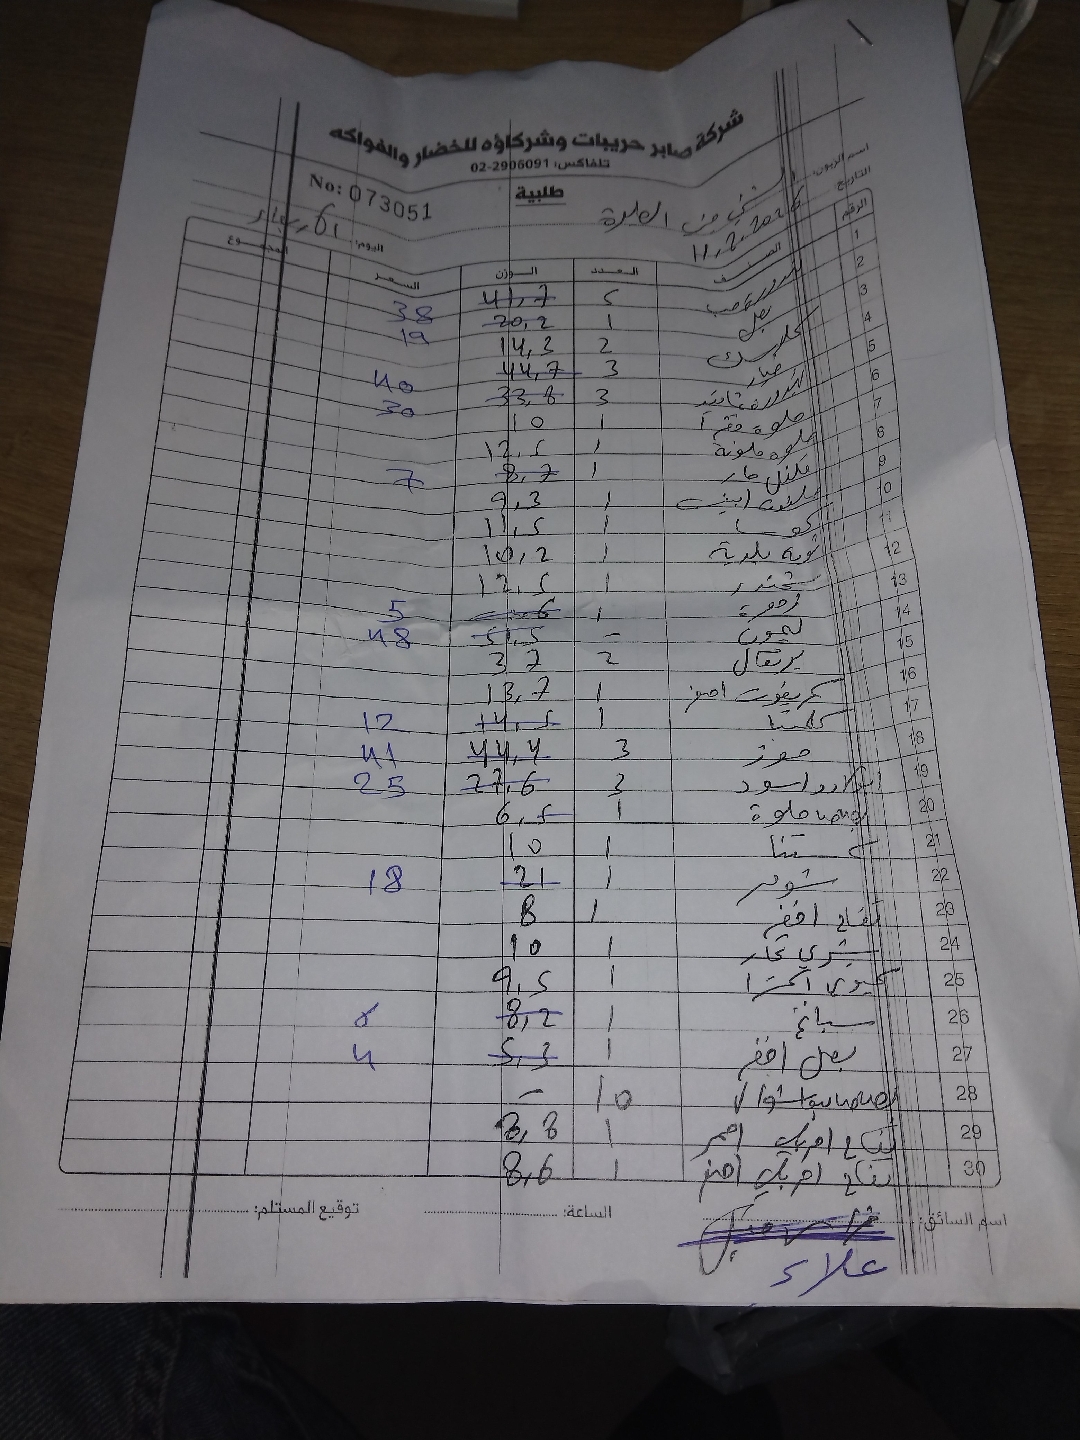 شركة صابر حريبات وشركاؤه للخضار والفواكه
تلفاكس: 02-2906091
No: 073051
طلبية
اسم الزبون:
التاريخ: 11,2,2026
اليوم:
الرقم الصنف العدد الوزن السعر المجموع
1 بندورة 5 41,7 38
2 بصل 1 20,2 19
3 2 14,3
4 خيار 3 44,7 40
5 بندورة 3 33,8 30
6 حلوة 1 10
7 حلوة ملونة 1 12,5
8 فلفل حار 1 8,7 7
9 1 9,3
10 كوسا 1 11,5
11 بلدية 1 10,2
12 شمندر 1 12,5
13 زهرة 1 6 5
14 ليمون - 51,5 48
15 برتقال 2 37
16 كريفوت اصفر 1 13,7
17 كلمنتينا 1 14,5 12
18 موز 3 44,4 41
19 اسود 3 27,6 25
20 حلوة 1 6,5
21 كستنا 1 10
22 شومر 1 21 18
23 تفاح اخضر 1 8
24 شيري 1 10
25 كيوي 1 9,5
26 سبانخ 1 8,2
27 بصل اخضر 1 5,3 4
28 10 -
29 تفاح احمر 1 8,8
30 تفاح اصفر 1 8,6
اسم السائق: الساعة: توقيع المستلم:
علاء